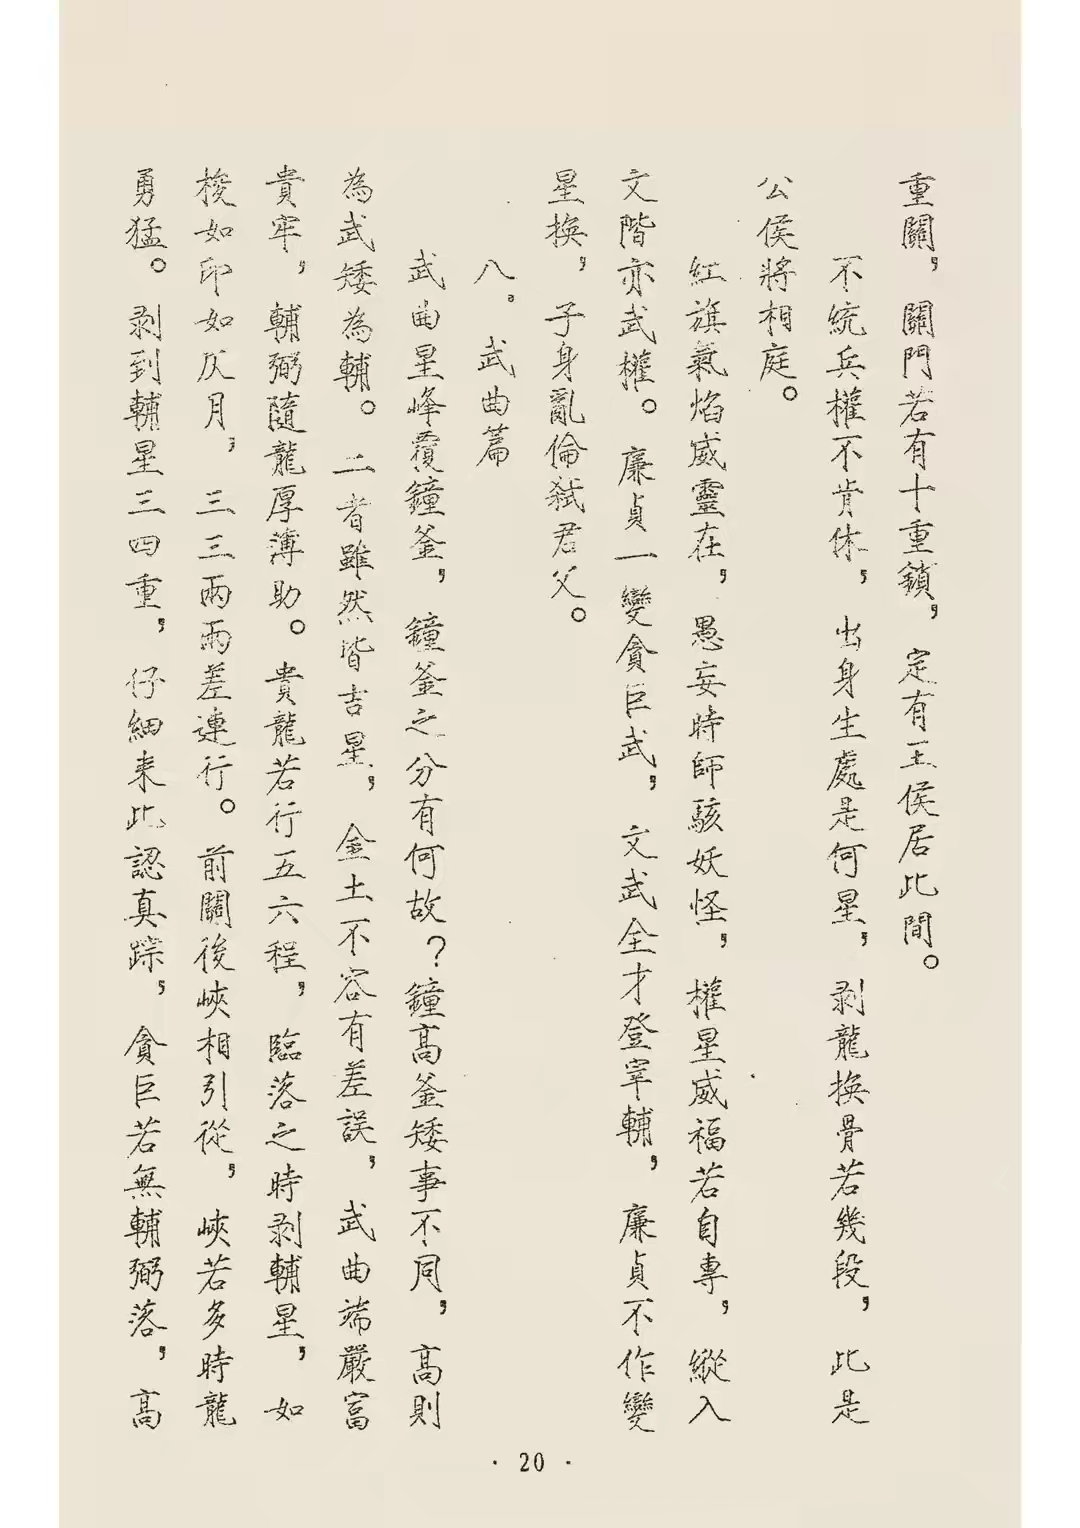 重關，關門若有十重鎖，定有王侯居此間。
不統兵權不肯休，出身生處是何星，剥龍換骨若幾段，此是
公侯將相庭。
紅旗氣焰威靈在，愚妄時師駭妖怪，權星威福若自專，縱入
文階亦武權。廉貞一變貪巨武，文武全才登宰輔，廉貞不作變
星換，子身亂倫弑君父。
八。武曲篇
武曲星峰覆鐘釜，鐘釜之分有何故？鐘高釜矮事不同，高則
為武矮為輔。二者雖然皆吉星，金土不容有差誤，武曲端嚴富
貴牢，輔弼隨龍厚薄助。貴龍若行五六程，臨落之時剥輔星，如
梭如印如仄月，三三兩兩差連行。前關後峽相引從，峽若多時龍
勇猛。剥到輔星三四重，仔細来此認真踪，貪巨若無輔弼落，高
· 20 ·